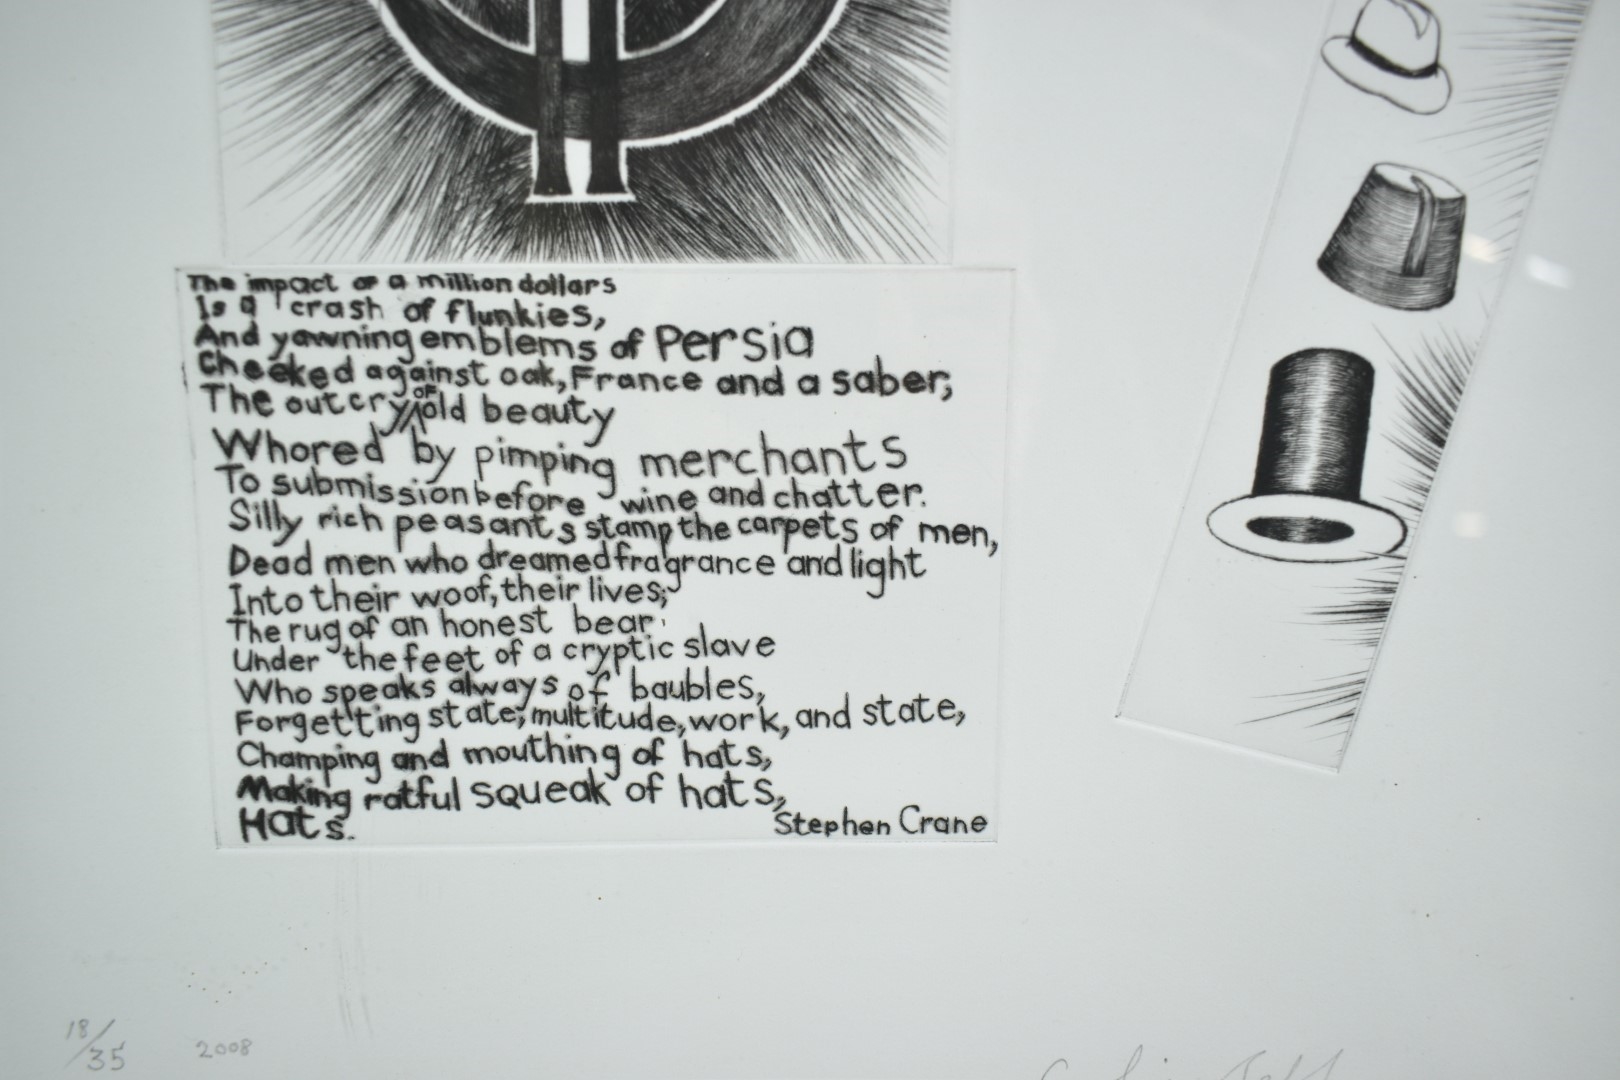 The impact of a million dollars
Is a crash of flunkies,
And yawning emblems of Persia
Cheeked against oak, France and a saber,
The outcry of old beauty
Whored by pimping merchants
To submission before wine and chatter.
Silly rich peasants stamp the carpets of men,
Dead men who dreamed fragrance and light
Into their woof, their lives;
The rug of an honest bear
Under the feet of a cryptic slave
Who speaks always of baubles,
Forgetting state, multitude, work, and state,
Champing and mouthing of hats,
Making ratful squeak of hats,
Hats.
Stephen Crane
18/35
2008